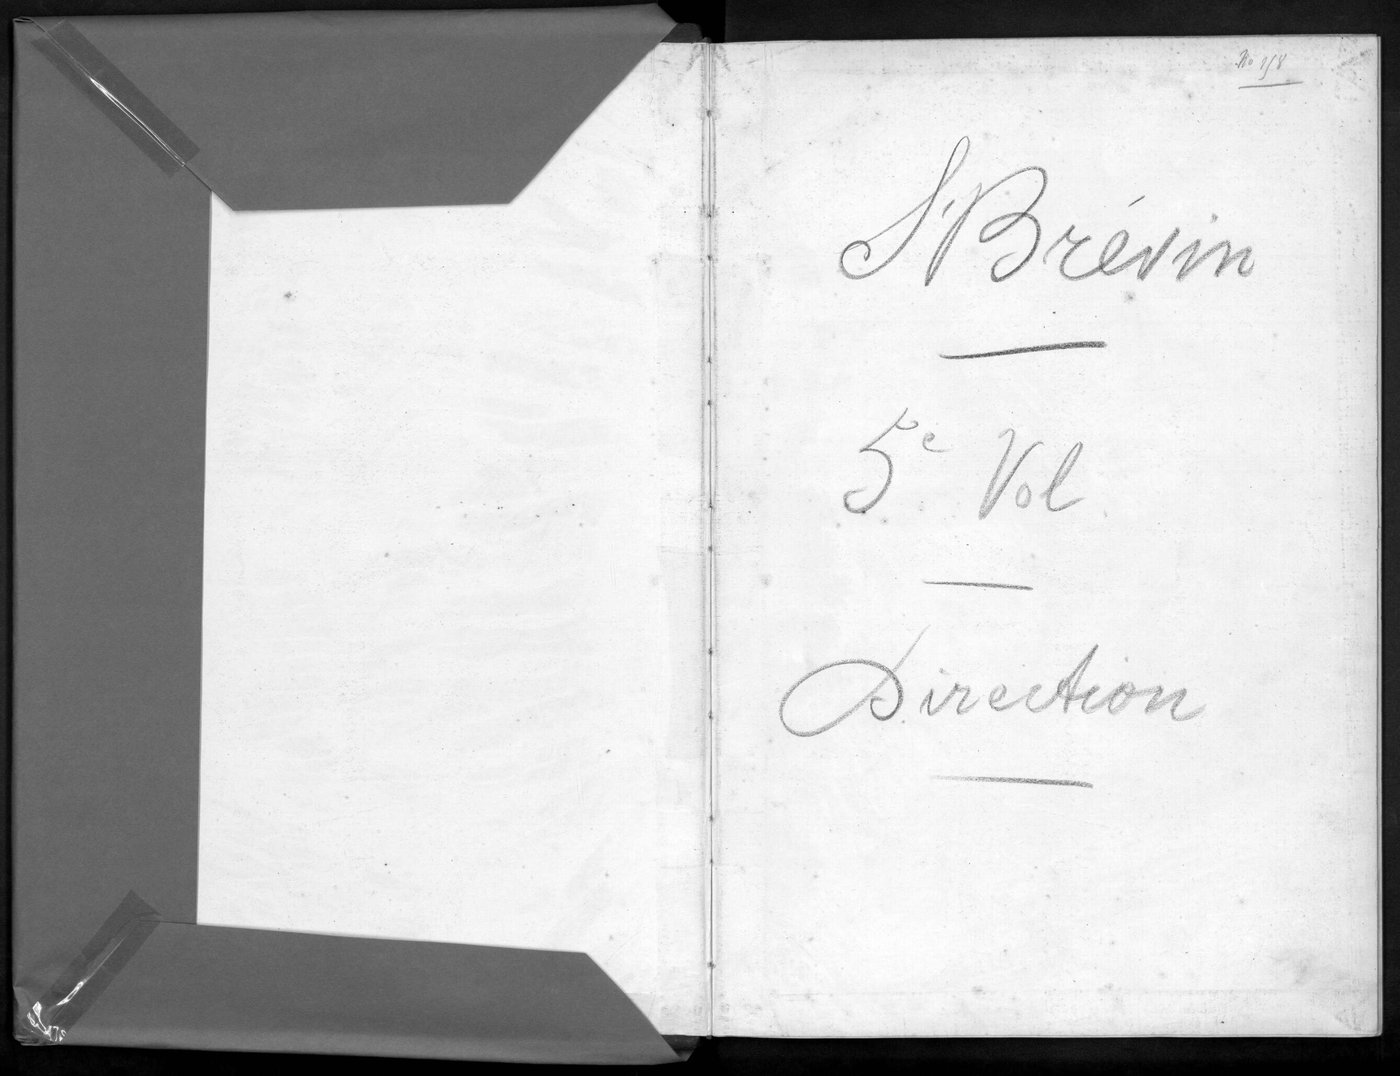 No
St Brévin
5e Vol
Direction